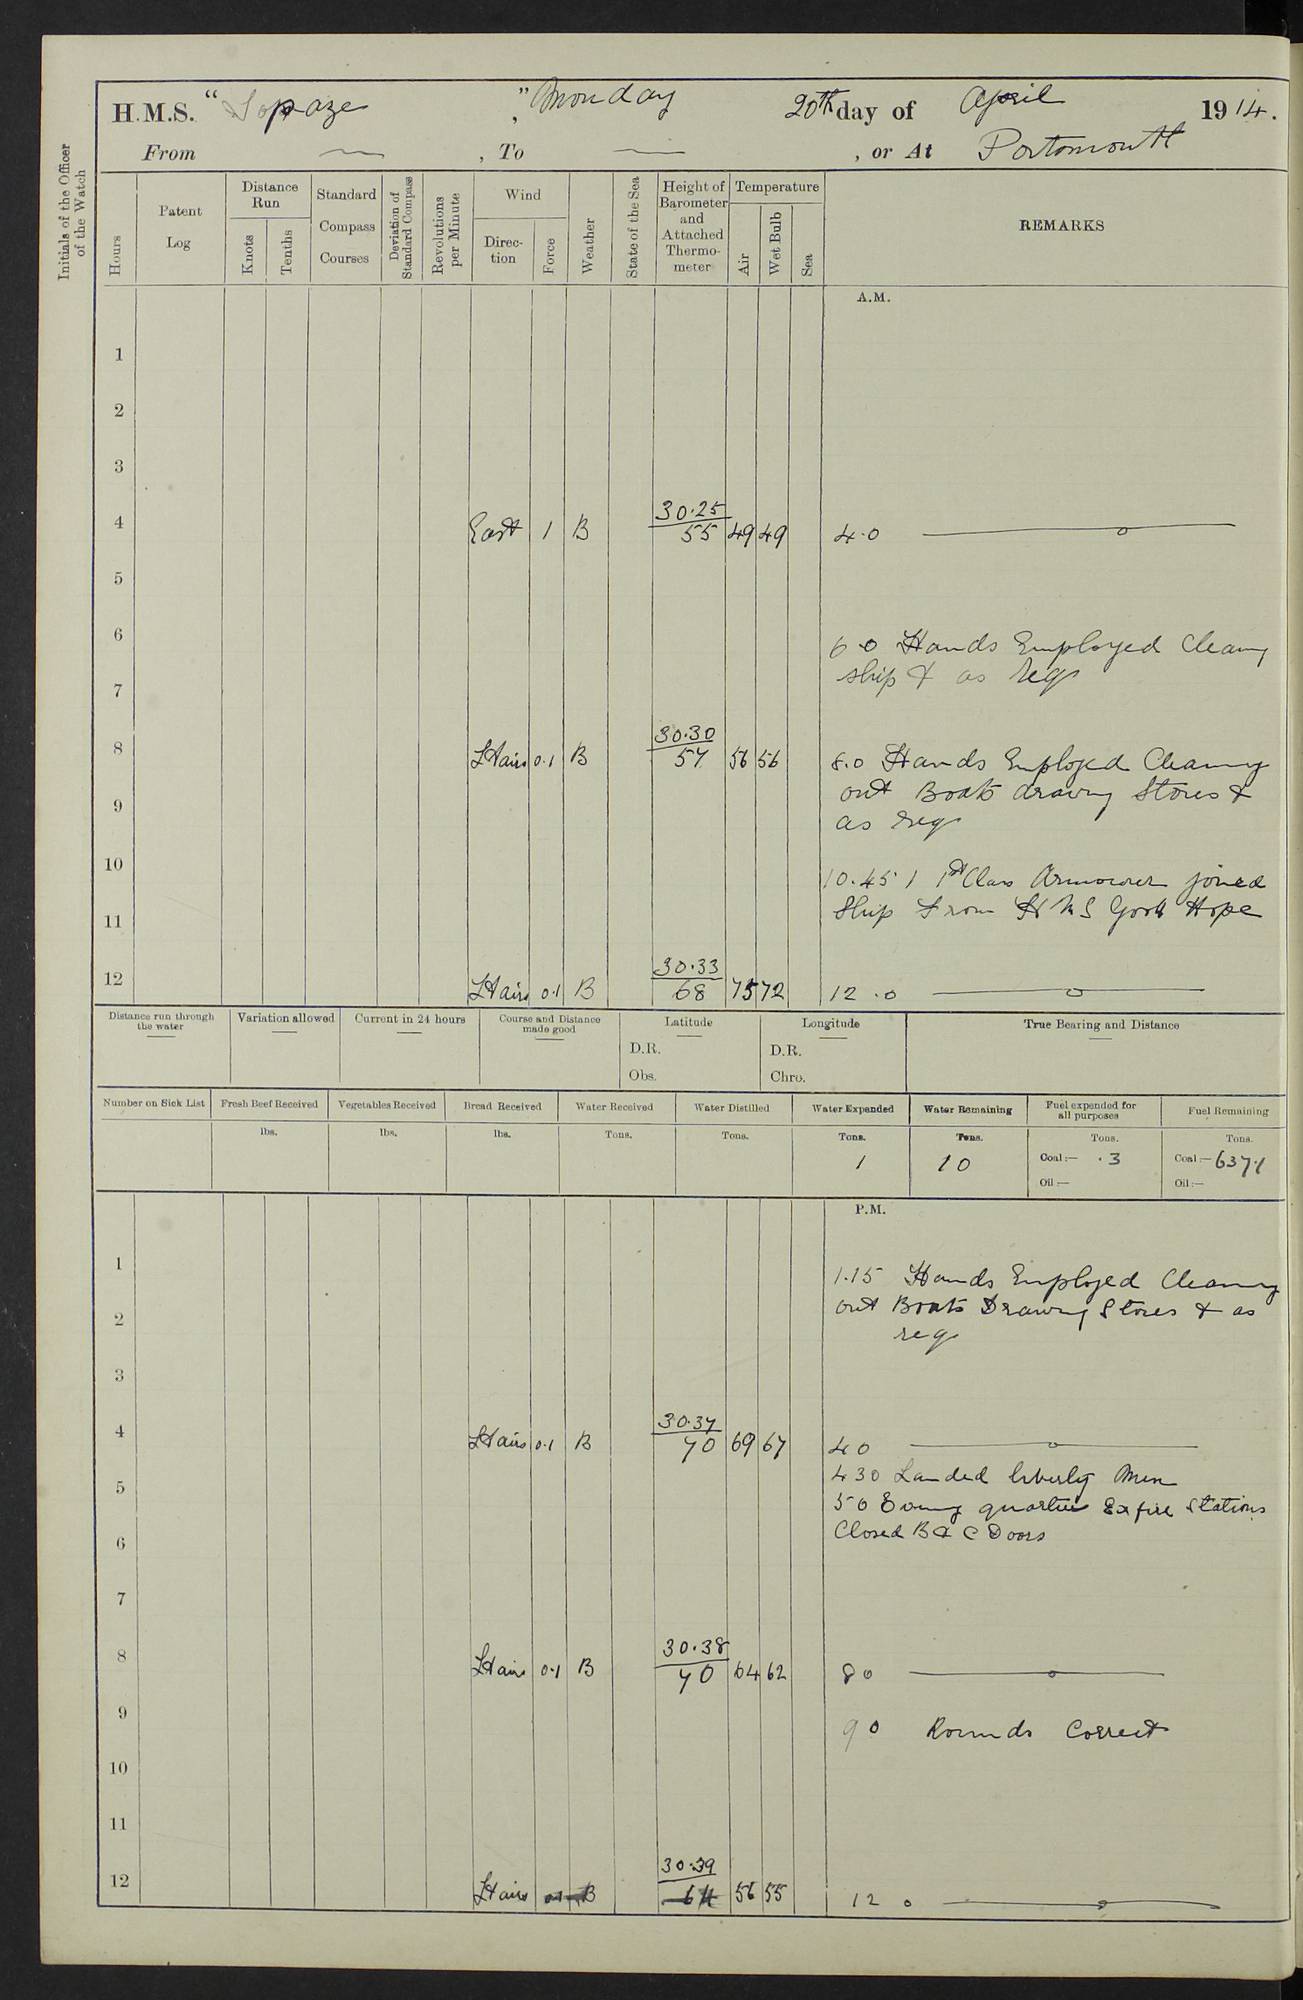 H.M.S. "Topaze", Monday 20th day of April 1914.
From — , To — , or At Portsmouth
Initials of the Officer of the Watch
Hours
Patent Log
Distance Run
Knots
Tenths
Standard Compass Courses
Deviation of Standard Compass
Revolutions per Minute
Wind
Direction
Force
Weather
State of the Sea
Height of Barometer and Attached Thermometer
Temperature
Air
Wet Bulb
Sea
REMARKS
A.M.
1
2
3
4 East 1 B 30.25 55 49 49 4.0
5
6 6.0 Hands Employed Cleang
ship & as req
7
8 Lt airs 0.1 B 30.30 57 56 56 8.0 Hands Employed Cleaning
out Boats drawing Stores &
9
as req
10 10.45 1 1st Class Armourer joined
11 Ship From H M S Good Hope
12 Lt airs 0.1 B 30.33 68 75 72 12.0
Distance run through the water
Variation allowed
Current in 24 hours
Course and Distance made good
Latitude
D.R.
Obs.
Longitude
D.R.
Chro.
True Bearing and Distance
Number on Sick List
Fresh Beef Received
lbs.
Vegetables Received
lbs.
Bread Received
lbs.
Water Received
Tons.
Water Distilled
Tons.
Water Expended
Tons.
1
Water Remaining
Tons.
10
Fuel expended for all purposes
Tons.
Coal:— .3
Oil:—
Fuel Remaining
Tons.
Coal:— 637.1
Oil:—
P.M.
1 1.15 Hands Employed Cleaning
2 out Boats Drawing Stores & as
req
3
4 Lt airs 0.1 B 30.37 70 69 67 4 0
4 30 Landed liberty Men
5 5 0 Evening quarters Ex fire Stations
Closed B & C Doors
6
7
8 Lt airs 0.1 B 30.38 70 64 62 8 0
9 9 0 Rounds Correct
10
11
12 Lt airs B 30.39 64 56 55 12 0